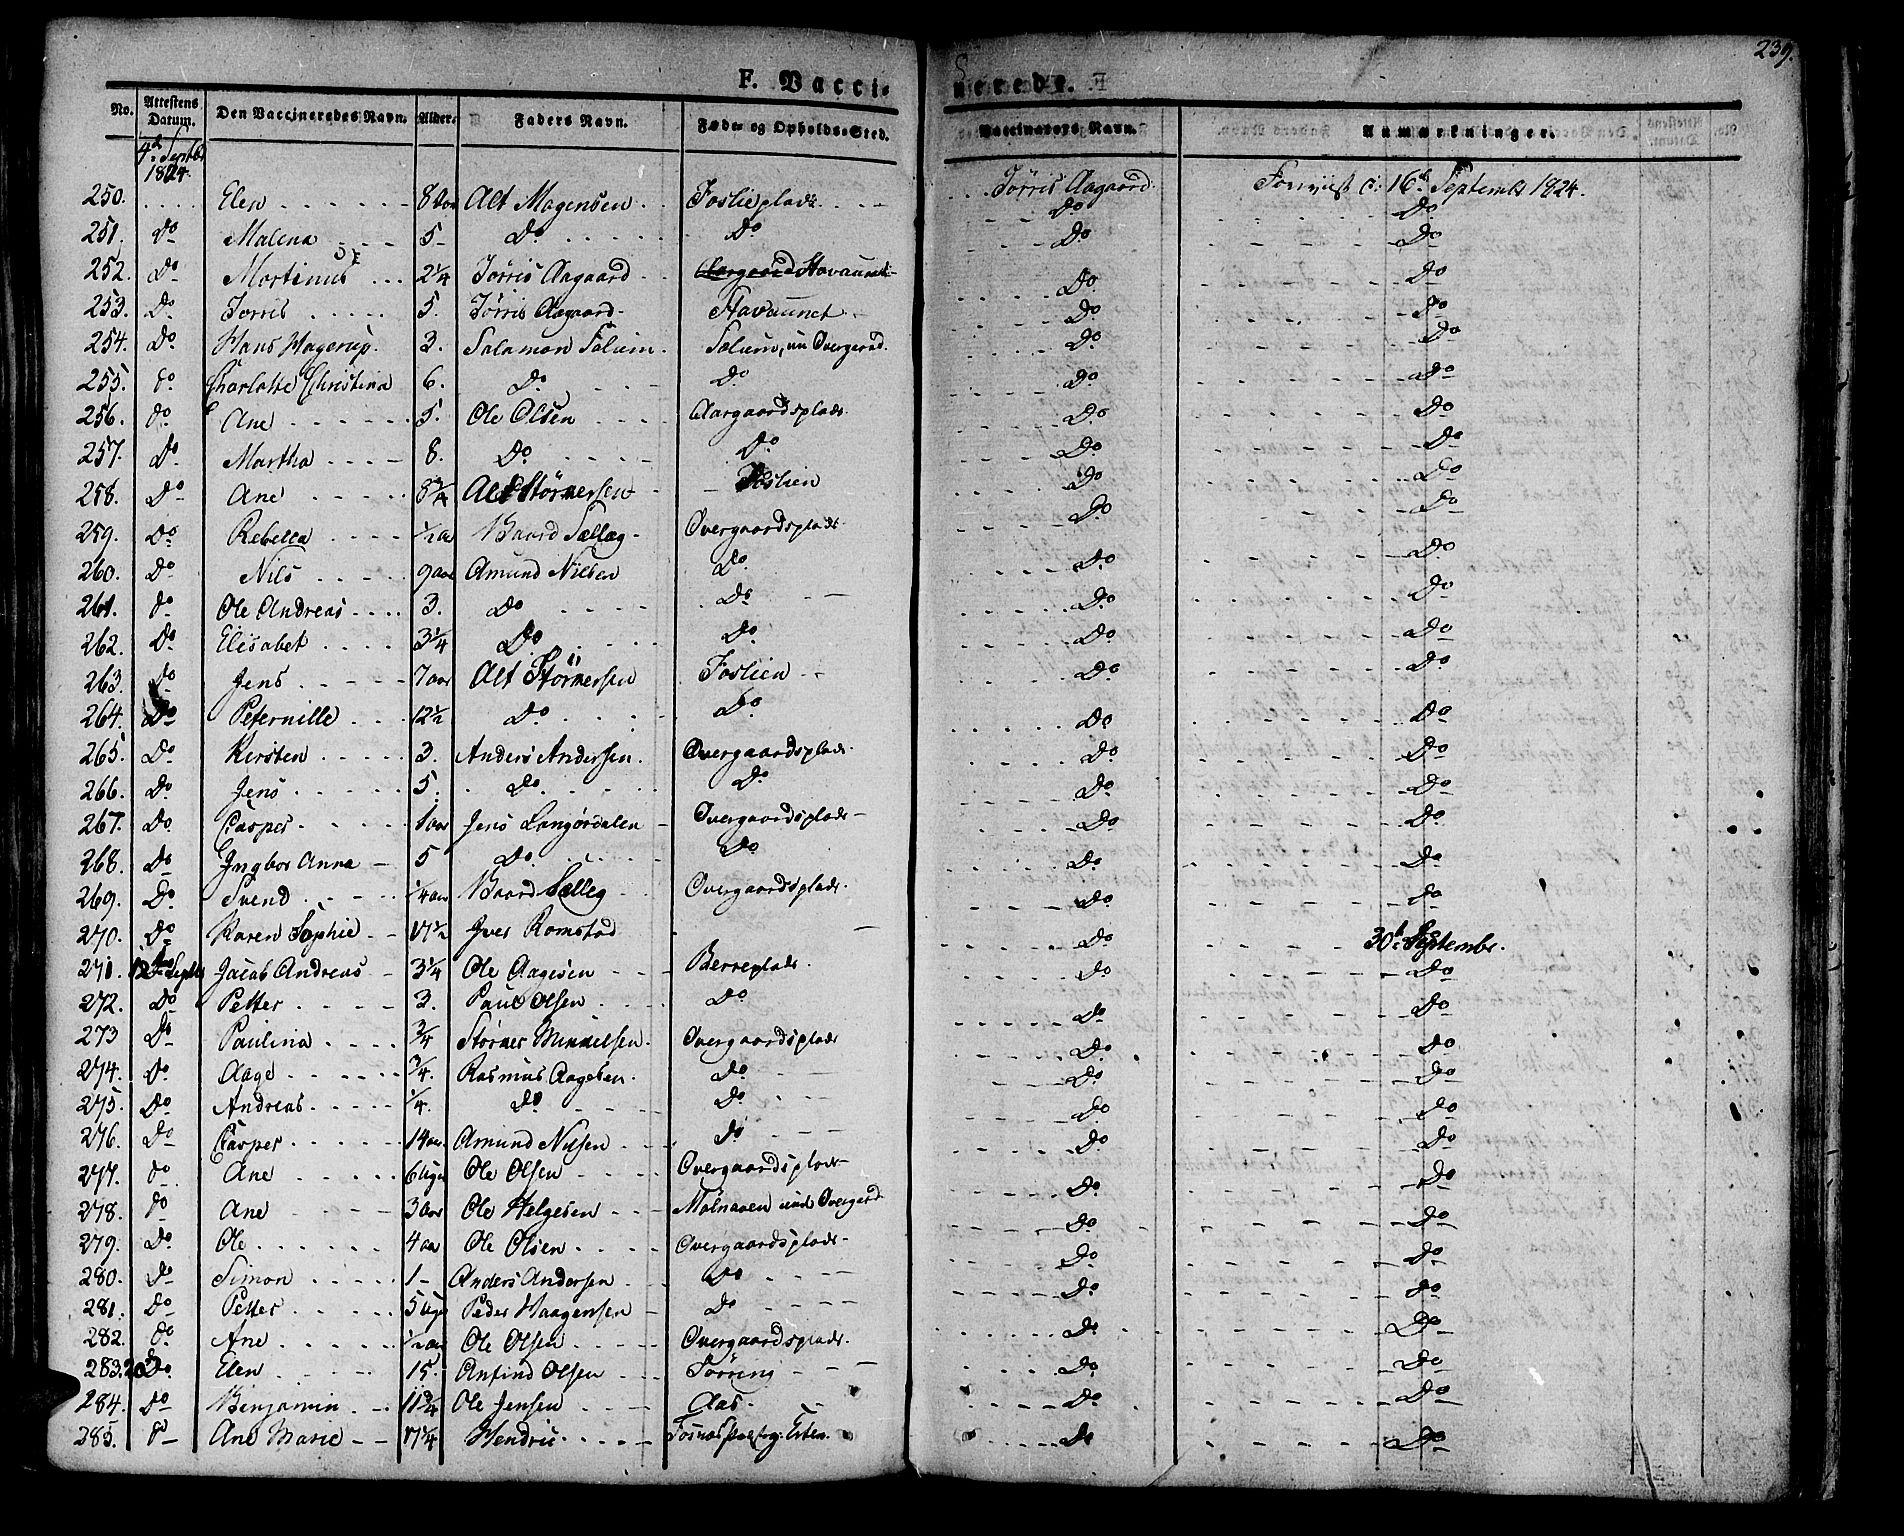 239.
F. Vaccinerede.
No. Attestens Datum. Den Vaccineredes Navn. Alder. Faders Navn. Føde- og Opholds-Sted. Vaccinateurs Navn. Anmærkninger.
4d Septbr 1824.
250. .... Elen 8 Aar Alt Mogensen Foslieplads Tørris Aagaard 16d Septembr 1824.
251. Do Malena 5 Do Do Do Do
252. Do Mortinus 2 1/4 Tørris Aagaard Havaunet Do Do
253. Do Torris 5. Tørris Aagaard Havaunet Do Do
254. Do Hans Hagerup. 3. Salamon Solum Solum, un Overgard. Do Do
255. do Charlotte Christina 6. Do Do Do Do
256. do Ane 5. Ole Olsen Aargaardsplads Do Do
257. Do Martha 8. Do Do Do Do
258. Do Ane 8 3/4 Alt Størkersen Foslien Do Do
259. Do Rebekka 1/2 aa Baard Sælleg Overgaardsplads Do Do
260. Do Nils 9 aar Amund Nielsen Do Do Do
261. do Ole Andreas 3. Do Do Do Do
262. Do Elisabet 3 1/4 Do Do Do Do
263. Do Jens 7 aar Alt Størkersen Foslien Do Do
264. Do Peternille 12 1/2 Do Do Do Do
265. Do Kirsten 3. Anders Andersen Overgaardsplads Do Do
266. Do Jens 5. Do Do Do Do
267. Do Casper 1 aar Jens Langørdalen Overgaardsplads Do Do
268. Do Ingbor Anna 5 Do Do Do Do
269. Do Svend 1/4 aar Baard Sælleg Overgaardsplads. Do Do
270. Do Karen Sophie 17 1/2 Iver Romstad Do 30d Septembr.
271. 12 Septbr Jacob Andreas 3 1/4 Ole Aagesen Berreplads Do Do
272. Do Petter 3. Paul Olsen Do Do Do
273 Do Paulina 3/4 Størker Mikkelsen Overgaardsplads Do Do
274. Do Aage 3/4. Rasmus Aagesen Do Do Do
275. Do Andreas 1/4. Do Do Do Do
276. Do Casper 14 aar Amund Nilsen Do Do Do
277. do Ane 6 Uger Ole Olsen Overgaardsplads Do Do
278. do Ane 3 aar Ole Helgesen Mølnaven und Overgard Do Do
279. Do Ole 4 aar Ole Olsen Overgaardsplads Do Do
280. Do Simon 1 Anders Andersen Do Do Do
281. Do Petter 5 Uger Peder Haagensen Do Do Do
282. do Ane 1/2 aar Ole Olsen Overgaardsplads. Do Do
283. Do Elen 15. Anfind Olsen Tørring Do Do
284. Do Benjamin 11 3/4 Ole Jensen Aas. Do Do
285. do Ane Marie 17 1/4 Hendric Do Do